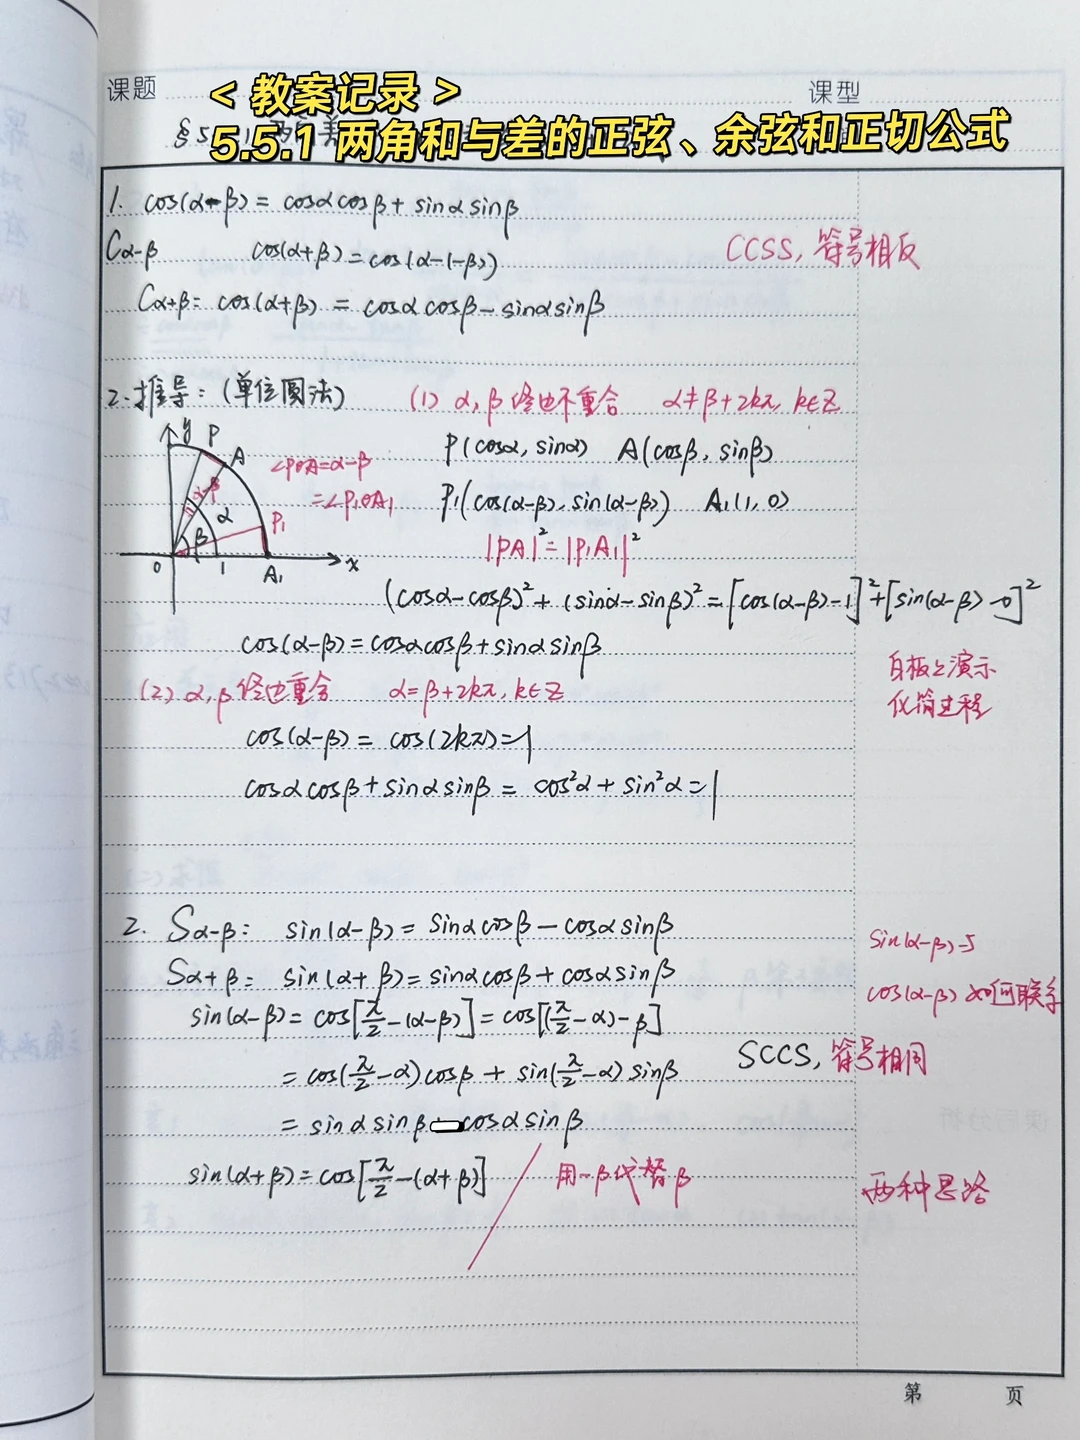 课题
课型
< 教案记录 >
5.5.1 两角和与差的正弦、余弦和正切公式
1. cos(α-β) = cosαcosβ + sinαsinβ
Cα-β cos(α+β) = cos(α-(-β))
CCSS, 符号相反
Cα+β: cos(α+β) = cosαcosβ - sinαsinβ
2. 推导: (单位圆法) (1) α, β 终边不重合 α≠β+2kπ, k∈Z
y P A
∠POA=α-β
=∠P₁OA₁
α-β α β P₁
0 1 A₁ x
P(cosα, sinα) A(cosβ, sinβ)
P₁(cos(α-β), sin(α-β)) A₁(1, 0)
|PA|² = |P₁A₁|²
(cosα-cosβ)² + (sinα-sinβ)² = [cos(α-β)-1]² + [sin(α-β)-0]²
cos(α-β) = cosαcosβ + sinαsinβ
白板上演示
化简过程
(2) α, β 终边重合 α=β+2kπ, k∈Z
cos(α-β) = cos(2kπ) = 1
cosαcosβ + sinαsinβ = cos²α + sin²α = 1
2. Sα-β: sin(α-β) = sinαcosβ - cosαsinβ
Sα+β: sin(α+β) = sinαcosβ + cosαsinβ
sin(α-β)与
cos(α-β) 如何联系
sin(α-β) = cos[π/2-(α-β)] = cos[(π/2-α)-β]
SCCS, 符号相同
= cos(π/2-α)cosβ + sin(π/2-α)sinβ
= sinαsinβ - cosαsinβ
sin(α+β) = cos[π/2-(α+β)] 用-β代替β
两种思路
第 页